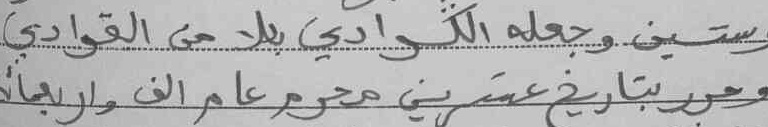 وستين وجعله الكوادي بلا من القوادي
وحرر بتاريخ عشرين محرم عام الف واربعمائة